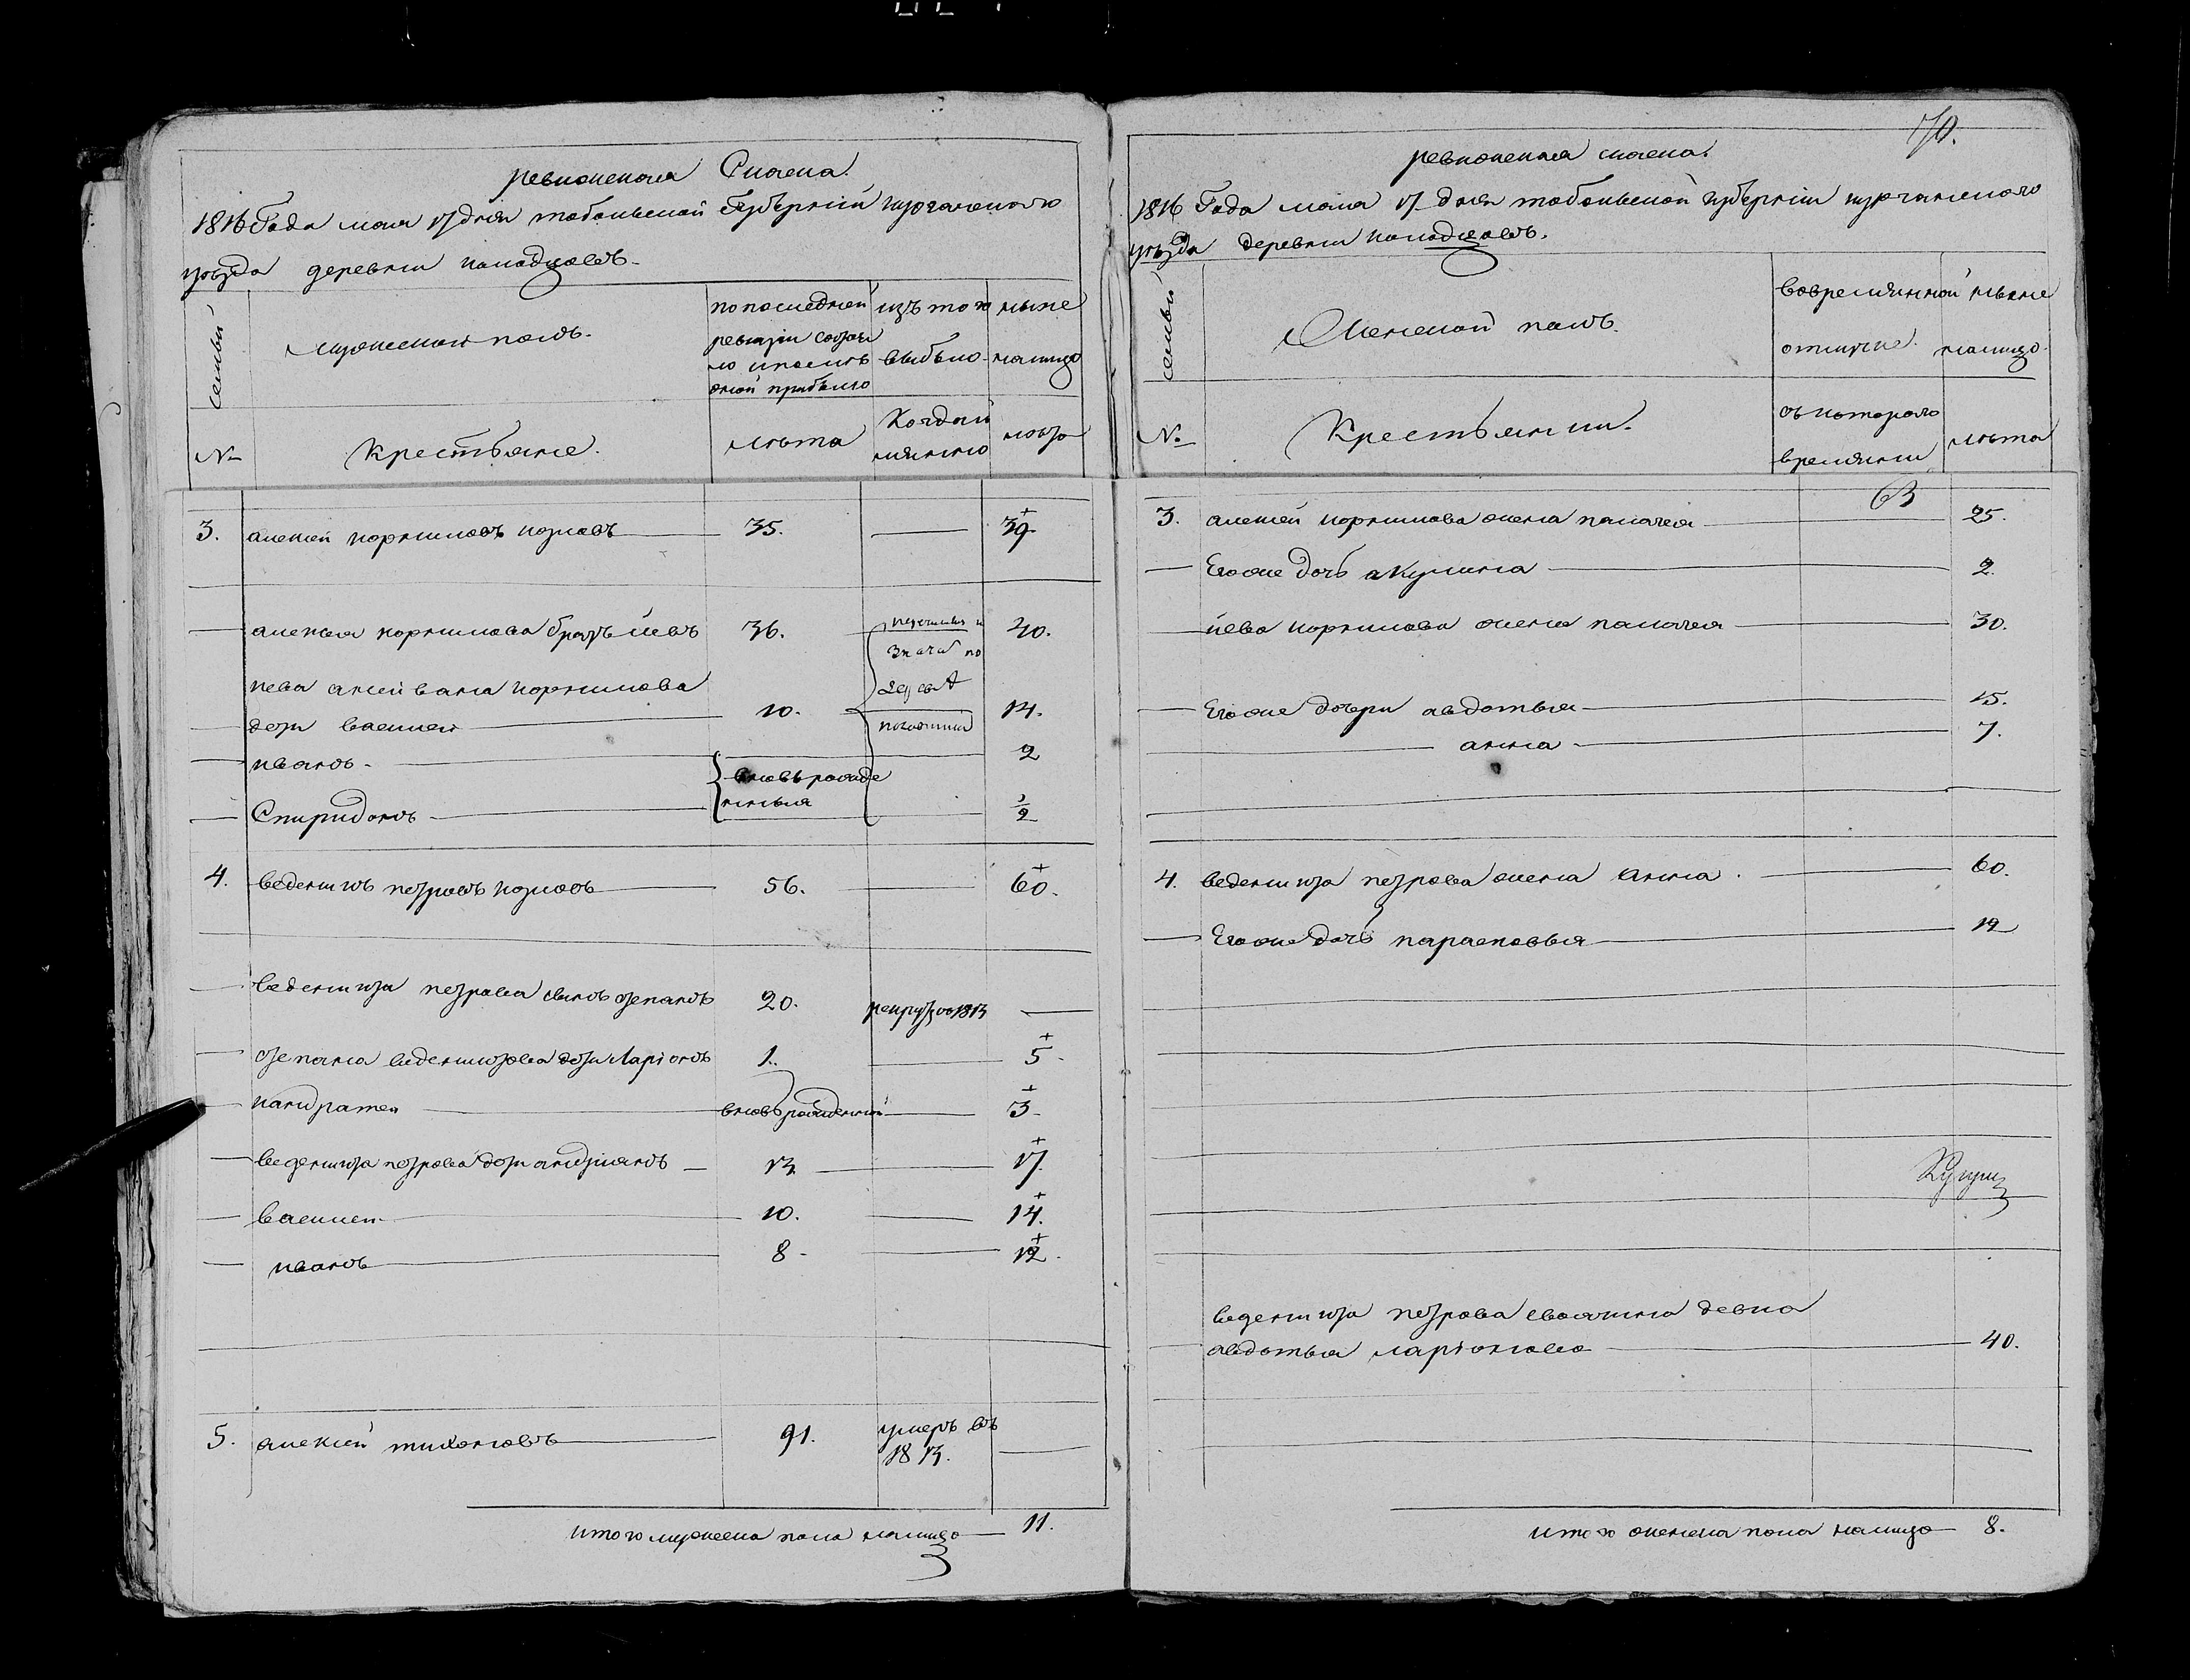 ревизская Скаска.
1816 Года маия 17 дня тобольской Губернии курганскаго
уезда деревни колодцовъ
семьи
мужеской полъ.
по последней
ревизии состоя
ло и после
оной прибыло
изъ того
выбыло
ныне
налицо
№
Крестьяне.
лета
Когда и
мянно
лета
3. алексей корниловъ козловъ 35. — 39.
алексея корнилова братъ иевъ 36. 40.
иева
корнилова
дети василей 10. 14.
иванъ 2
вновь рожде
нныя
Спиридонъ 1/2
4. веденихтъ петровъ козловъ 56. — 60.
веденихта петрова сынъ степанъ 20. рекрутъ 1813 —
степана веденихтова дети Ларионъ 1. — 5
кандратей вновь рожденной — 3
веденихта петрова дети андриянъ 13 — 17.
василей 10. — 14.
иванъ 8 — 12.
5. алексей тихоновъ 91. умеръ въ
1813. —
итого мужеска пола налицо 11.
170.
ревизская скаска.
1816 Года маия 17 дня тобольской губернии курганскаго
уезда деревни колодцовъ.
семьи
Женской полъ.
во временной
отлучке.
ныне
налицо
№
Крестьянки.
съ котораго
времяни
лета
63
3. алексея корнилова жена палагея 25.
— Его же дочь акулина 2.
иева корнилова жена палагея 30.
— Его же дочери авдотья 15.
анна 7.
4. веденихта петрова жена анна. 60.
— Его же дочь парасковья 12
веденихта петрова своячина девка
авдотья ларионова 40.
итого женска пола налицо 8.